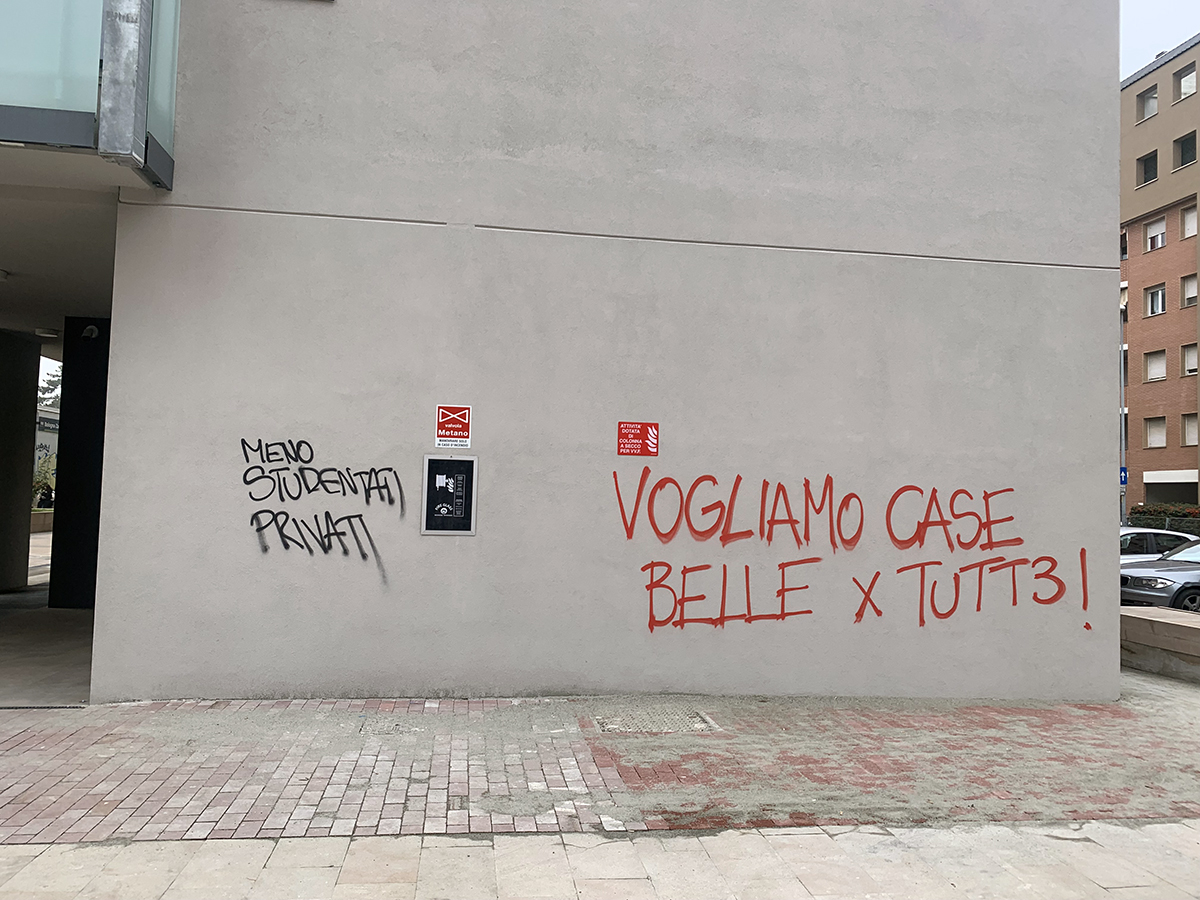 MENO
STUDENTATI
PRIVATI
valvola
Metano
MANOVRARE SOLO
IN CASO D'INCENDIO
ATTIVITA'
DOTATA DI
COLONNA
A SECCO
PER VV.F.
VOGLIAMO CASE
BELLE X TUTT3!